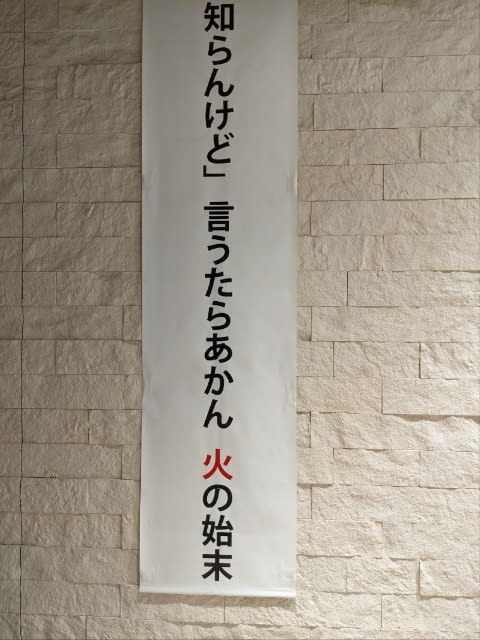 知らんけど」 言うたらあかん 火の始末